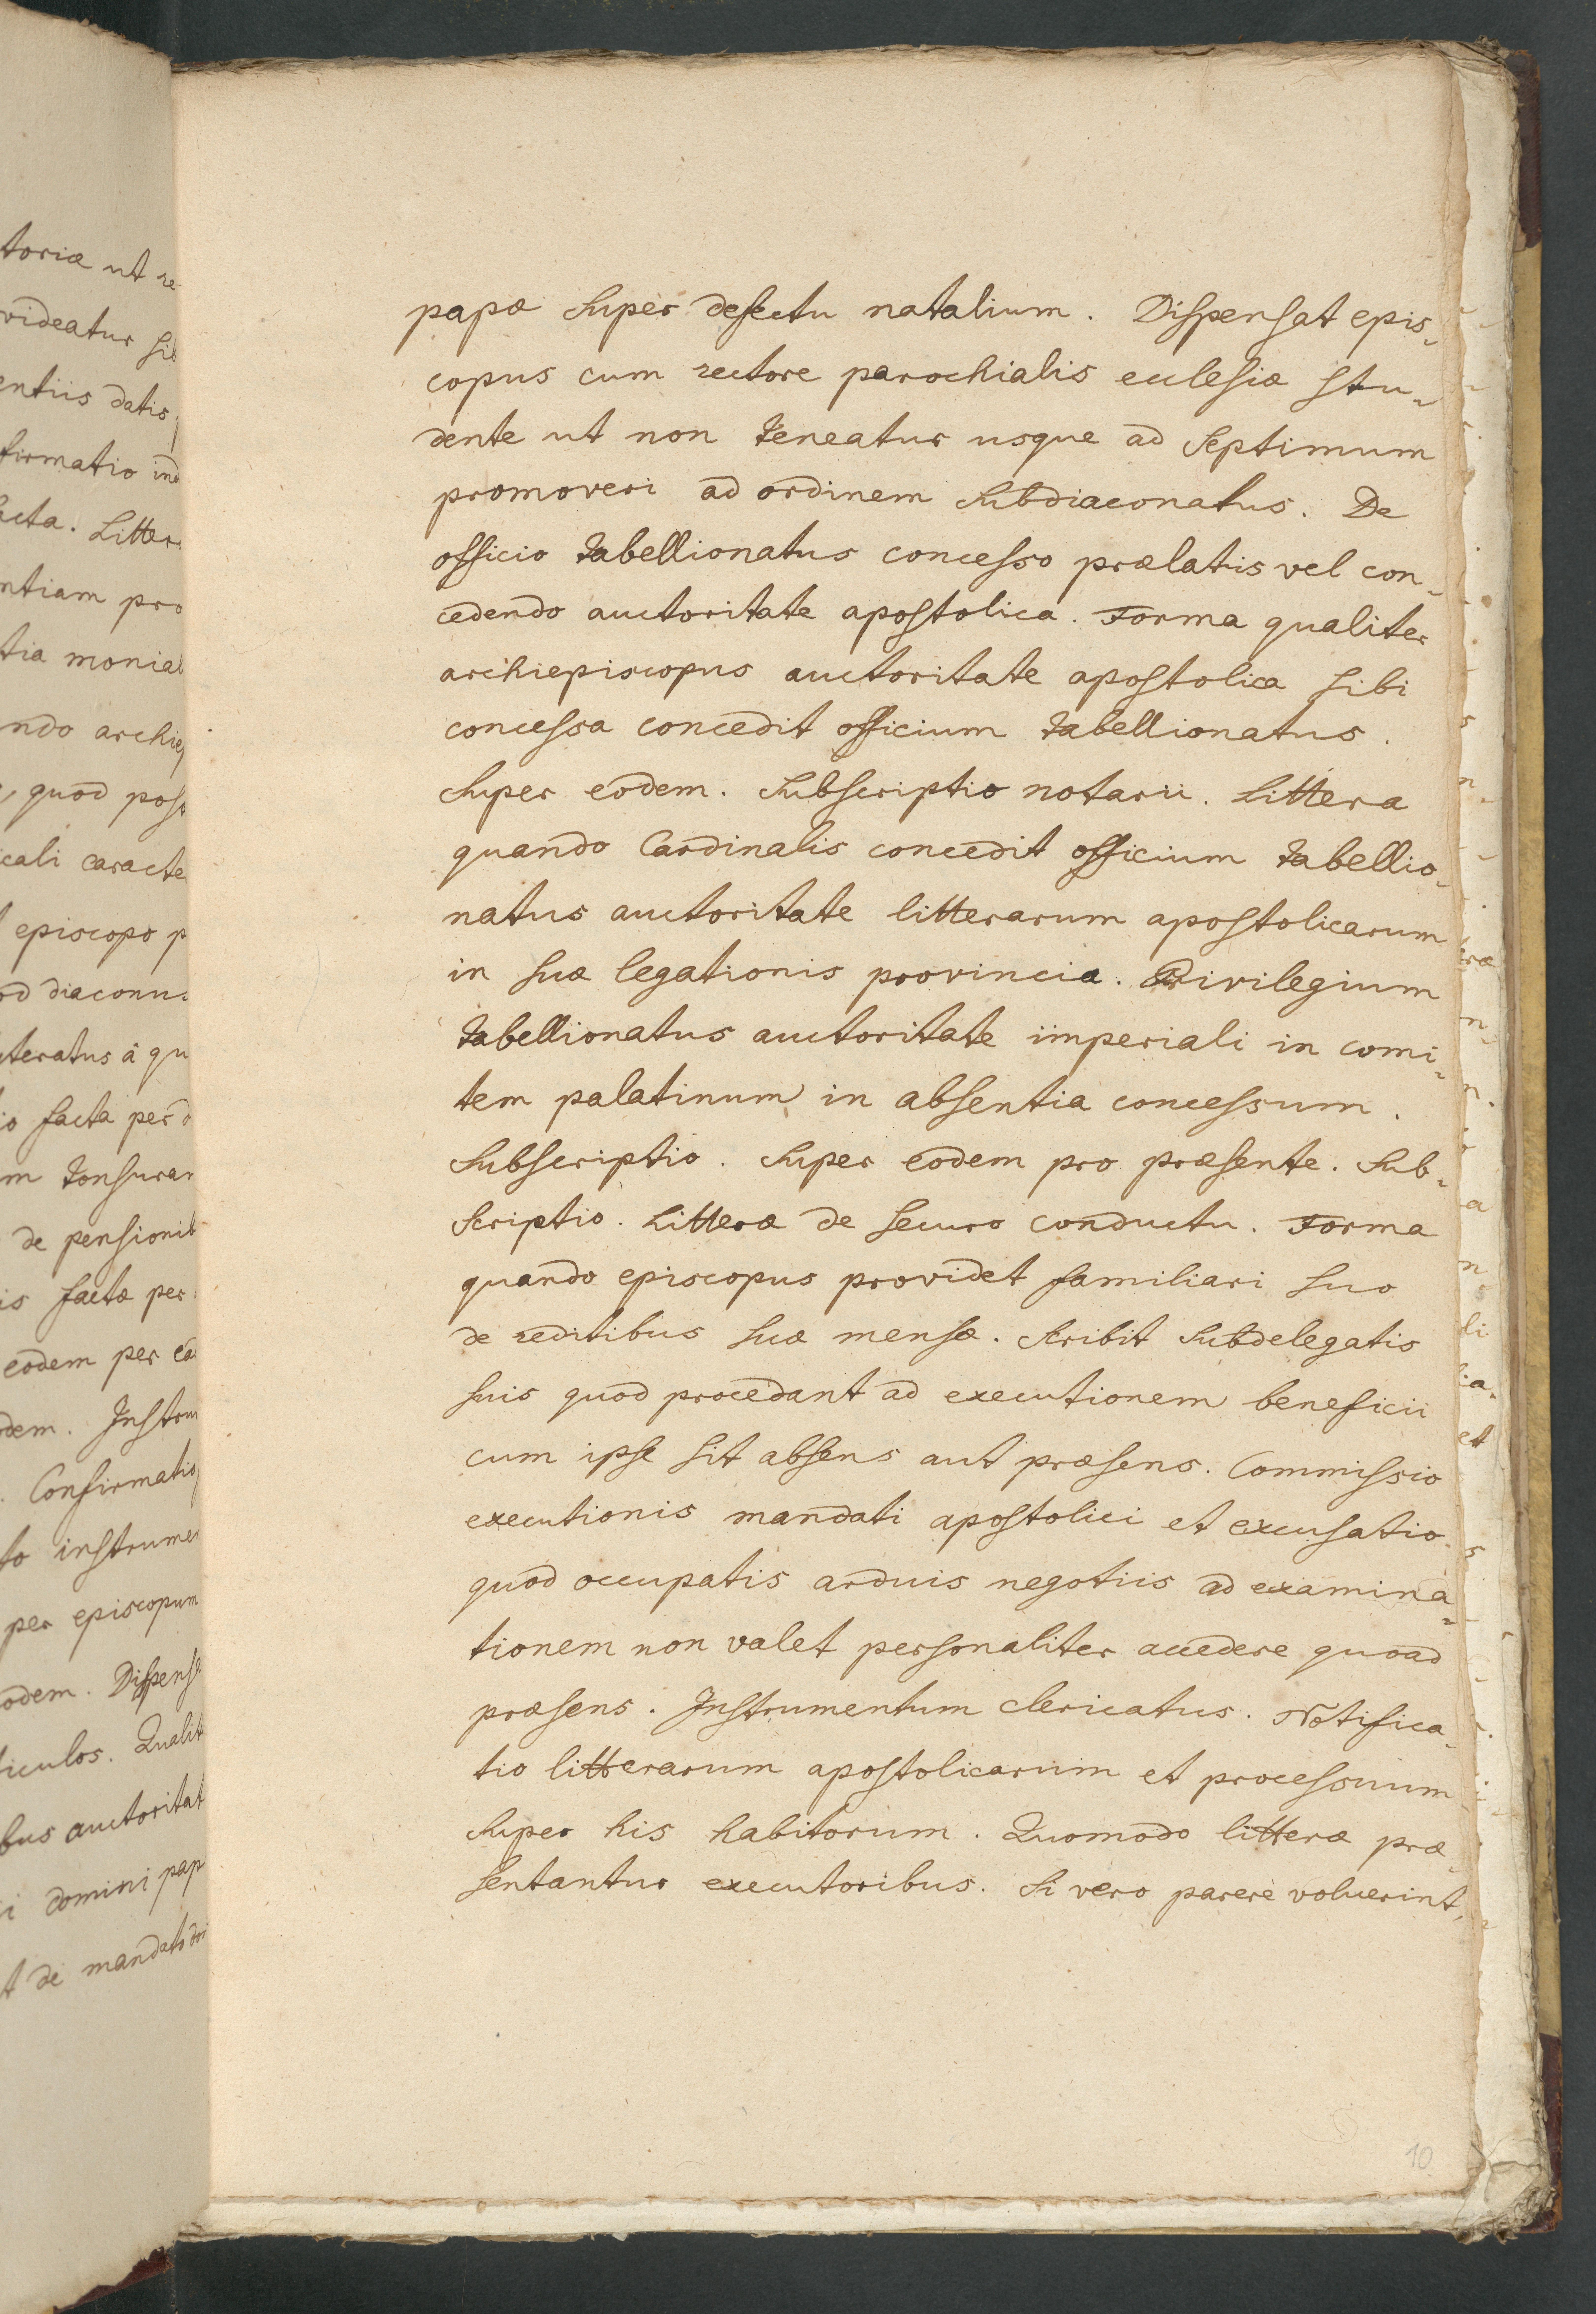 papæ super defectu natalium. Dispensat epis-
copus cum rectore parochialis ecclesiæ stu-
dente ut non teneatur usque ad septimum
promoveri ad ordinem subdiaconatus. De
officio tabellionatus concesso prælatis vel con-
cedendo auctoritate apostolica. Forma qualiter
archiepiscopus auctoritate apostolica sibi
concessa concedit officium tabellionatus.
Super eodem. Subscriptio notarii. Littera
quando Cardinalis concedit officium tabellio-
natus auctoritate litterarum apostolicarum
in suæ legationis provincia. Privilegium
tabellionatus auctoritate imperiali in comi-
tem palatinum in absentia concessum.
Subscriptio. Super eodem pro præsente. Sub-
scriptio. Litteræ de securo conductu. Forma
quando episcopus providet familiari suo
de reditibus suæ mensæ. Scribit subdelegatis
suis quod procedant ad executionem beneficii
cum ipse sit absens aut præsens. Commissio
executionis mandati apostolici et excusatio
quod occupatis arduis negotiis ad examina-
tionem non valet personaliter accedere quoad
præsens. Instrumentum clericatus. Notifica-
tio litterarum apostolicarum et processuum
super his habitorum. Quomodo litteræ præ-
sentantur executoribus. Si vero parere voluerint,
10
toriæ ut re-
videatur sib
entiis datis
firmatio ind
acta. Litter
ntiam pro
tia monial
ndo archiep
quod post
cali caracte
episcopo p
od diaconus
teratus â qu
o facta per d
m tonsuram
de pensionib
is factæ per
eodem per ca
dem. Instrum
. Confirmatio
to instrumen
per episcopum
odem. Dispensa
iculos. Qualit
bus auctoritat
i domini pap
t de mandato dni